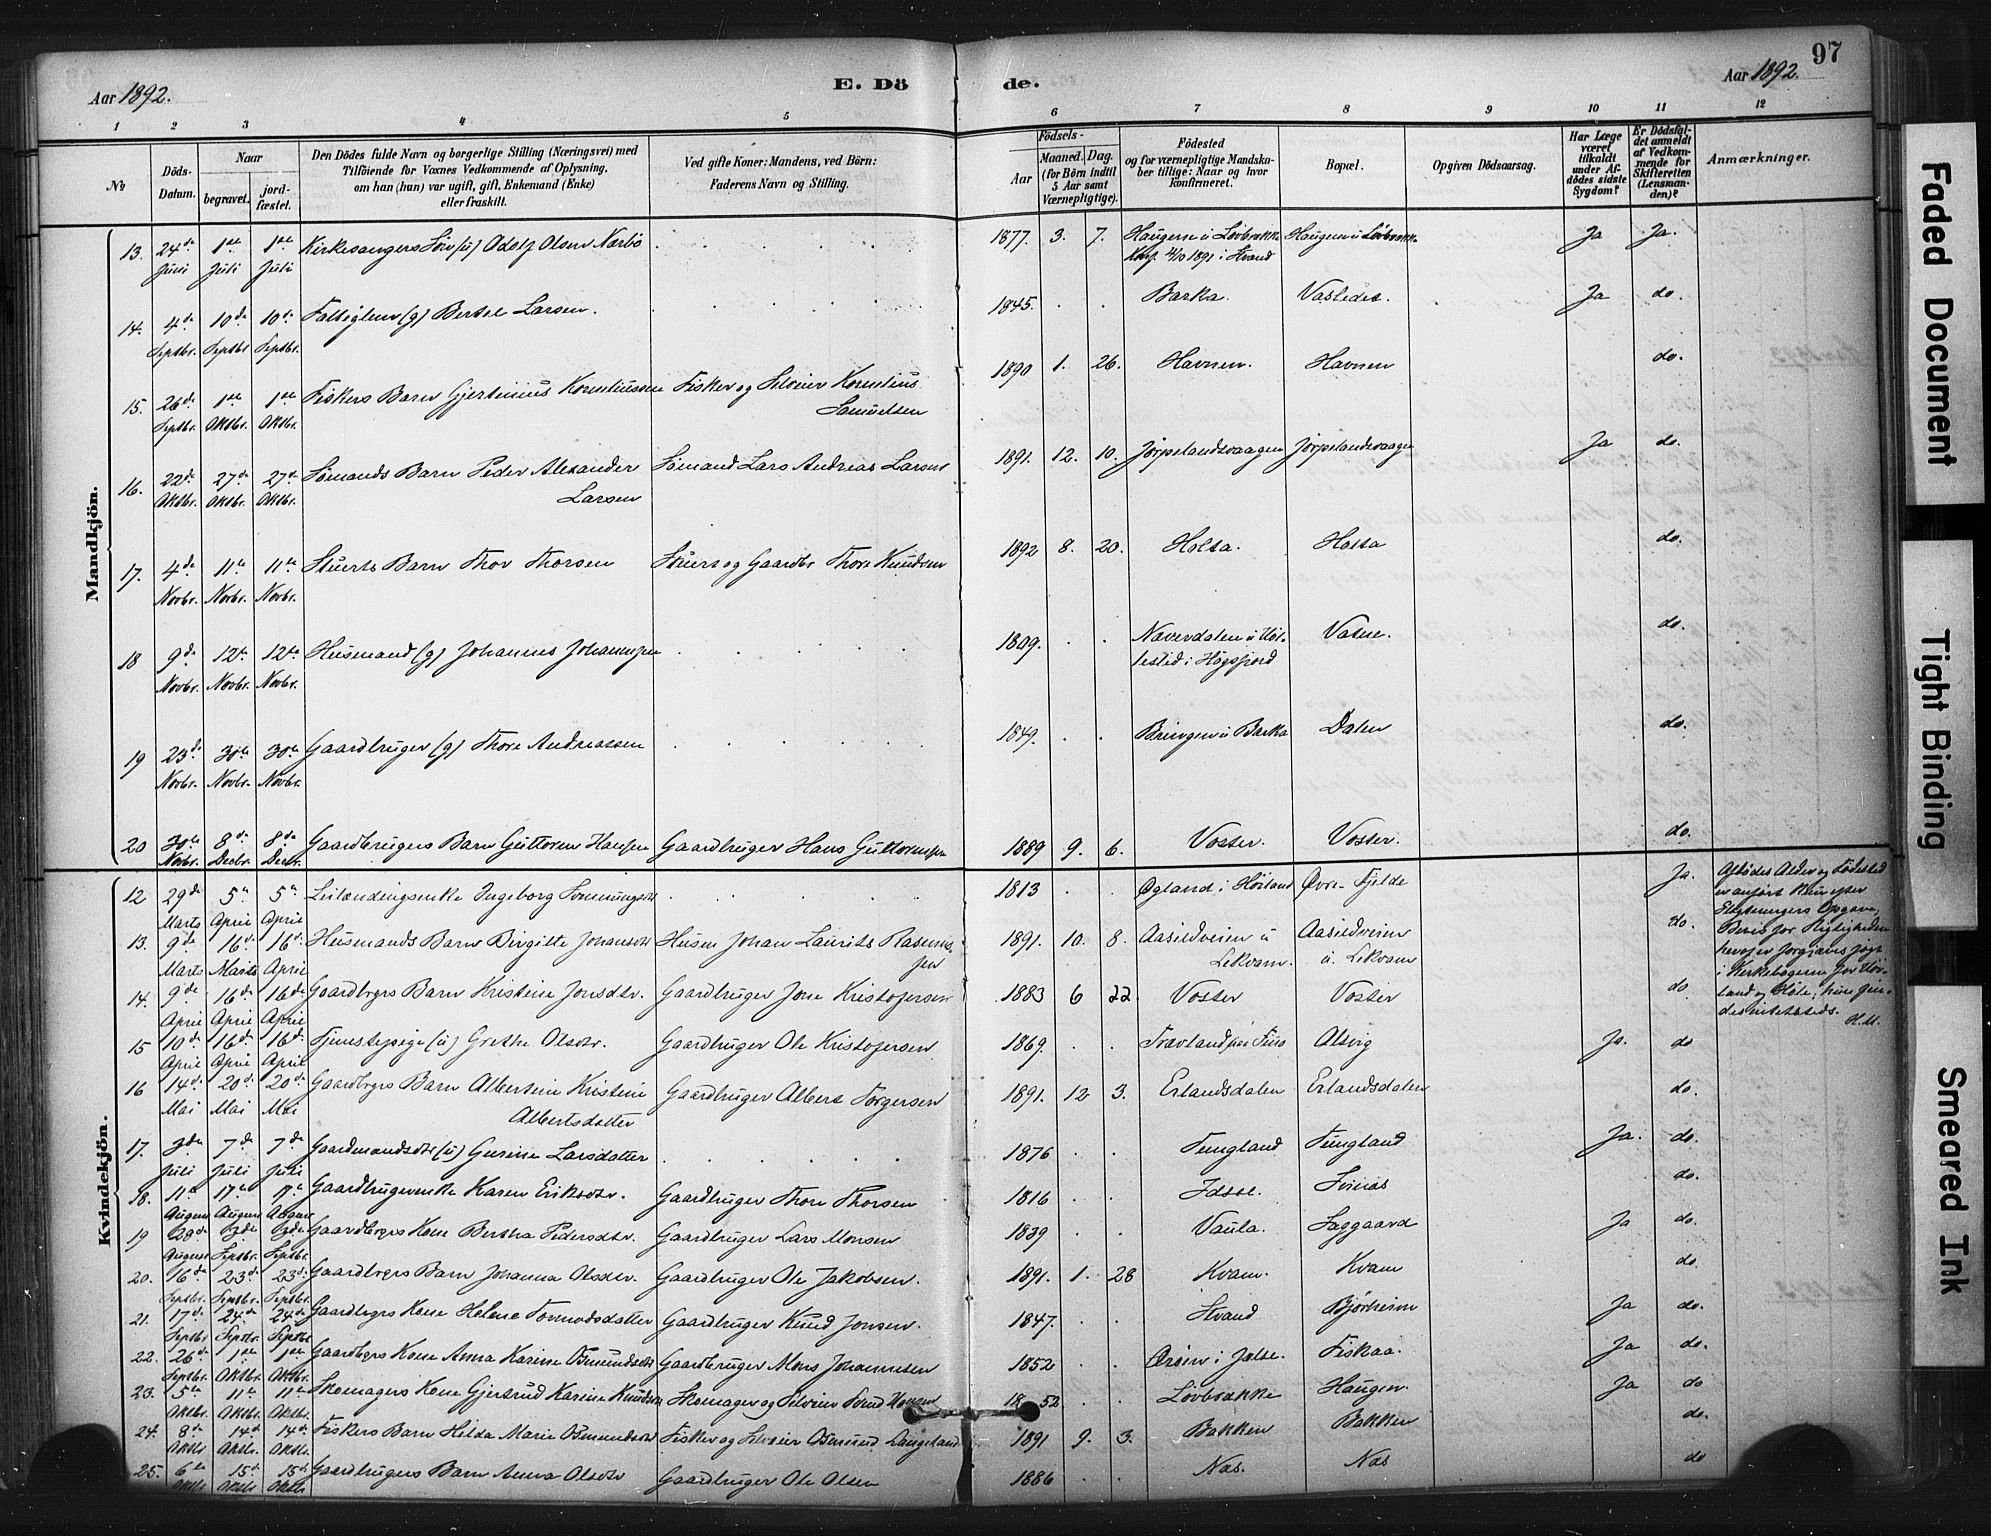 97
Aar 1892.
E. Dö
de.
Aar 1892.
1 2 3 4 5 6 7 8 9 10 11 12
No
Döds-
Datum.
Naar
begravet.
jord-
fæstet.
Den Dödes fulde Navn og borgerlige Stilling (Næringsvei) med
Tilföiende for Voxnes Vedkommende af Oplysning,
om han (hun) var ugift, gift, Enkemand (Enke)
eller fraskilt.
Ved gifte Koner: Mandens, ved Börn:
Faderens Navn og Stilling.
Födsels-
Aar
Maaned. Dag.
(for Börn indtil
5 Aar samt
Værnepligtige).
Födested
og for værnepligtige Mandska-
ber tillige: Naar og hvor
konfirmeret.
Bopæl.
Opgiven Dödsaarsag.
Har Læge
været
tilkaldt
under Af-
dödes sidste
Sygdom?
Er Dödsfal-
det anmeldt
af Vedkom-
mende for
Skifteretten
(Lensman-
den)?
Anmærkninger.
Mandkjön.
13. 24de 1ste 1ste Kirkesangers Søn (u) Adolf Olsen Nærbø 1877. 3. 7. Haugen u Løvbrække Haugen u Løvbrække Ja Ja.
Juni Juli Juli Konf. 4/10 1891 i Strand
14. 4de 10de 10de Fattiglem (g) Bertel Larsen. 1845. Barka. Vasledet. Ja do.
Septbr. Septbr Septbr.
15. 26de 1ste 1ste Fiskers Barn Gjertinius Korneliussen Fisker og Selveier Kornelius 1890 1. 26. Havnen. Havnen do.
Septbr. Oktbr. Oktbr. Samuelsen
16. 22de 27de 27de Sømands Barn Peder Alexander Sømand Lars Andreas Larsen 1891. 12. 10. Jørpelandsvaagen Jørpelandsvaagen Ja do.
Oktbr. Oktbr. Oktbr. Larsen
17. 4de 11te 11te Stuerts Barn Thor Thorsen Stuert og Gaardbr Thore Knudsen 1892 8. 20. Holta. Holta do.
Novbr. Novbr. Novbr.
18 9de 12te 12te Husmand (g) Johannes Johannessen 1809. Vatne. do.
Novbr. Novbr. Novbr. i Høgsfjord
19 23de 30te 30te Gaardbruger (g) Thore Andreassen 1849. Bringen u Barka Dalen do.
Novbr. Novbr. Novbr.
20 30te 8de 8de Gaardbrugers Barn Guttorm Hansen Gaardbruger Hans Guttormsen 1889 9. 6. Voster. Voster. do.
Novbr. Decbr. Decbr.
Kvindekjön.
12 29de 5te 5te Leilændingsenke Ingeborg 1813 Øgland i Høiland Øvre-Fjelde Ja. Afdødes Alder og Fødested
Marts April April er anført kun efter
13. 9de 16de 16de Husmands Barn Birgitte Johansdtr Husm Johan Laurits Rasmus- 1891. 10. 8. Aasildveien u Aasildveien do. Opgave,
Marts Marts April sen Lekvam. u. Lekvam Bevis for Rigtigheden
14. 9de 16de 16de Gaardbrgrs Barn Kristine Jonsdtr. Gaardbruger Jone Kristofersen 1883 6 22. Voster Voster do i Kirkebøgerne for Høi-
April April April land og Høle;
15 10de 16de 16de Tjenestepige (u) Grethe Olsdtr. Gaardbruger Ole Kristofersen 1869. Alsvig Ja. do H.M.
April April April
16 14de 20de 20de Gaardbrgrs Barn Albertine Kristine Gaardbruger Albert Torgersen 1891. 12 3. Erlandsdalen Erlandsdalen do.
Mai Mai Mai Albertsdatter
17. 3de 7de 7de Gaardmandsdtr (u) Gurine Larsdatter 1876 Tungland Tungland Ja. do.
Juli Juli Juli
18. 11te 17te 17te Gaardbrugerenke Karen Eriksdtr. Gaardbruger Thore Thorsen 1816 Idsse. do.
August August August
19 28de 3de 3de Gaardbrgrs Kone Bertha Pedersdtr. Gaardbruger Lars Monsen 1839 Vaula. Saggaard Ja do.
August Septbr. Septbr.
20. 16de 23de 23de Gaardbrgrs Barn Johanna Olsdtr. Gaardbruger Ole Jakobsen. 1891. 1. 28 Kvam. Kvam do.
Septbr. Septbr. Septbr.
21. 17de 24de 24de Gaardbrgrs Kone Helene Tormodsdatter Gaardbruger Knud Jonsen. 1847. Strand Bjørheim Ja do.
Septbr Septbr. Septbr
22. 26de 1ste 1ste Gaardbgrs Kone Anna Karine Osmundsdtr Gaardbruger Mons Johannesen 1852 i Jelse. Fiskaa. Ja do.
Septbr. Oktbr. Oktbr.
23. 5te 11te 11te Skomagers Kone Gjertrud Karine Knudsdtr Skomager og Selveier 1852 Løvbrække Haugen. Ja do
Oktbr. Oktbr. Oktbr.
24. 8de 14de 14de Fiskers Barn Hilda Marie Osmundsdtr Fisker og Selveier Osmund Langeland 1891 9. 3. Bakken Bakken do.
Oktbr Oktbr. Oktbr.
25. 6te 15de 15de Gaardbrugers Barn Anna Olsdtr Gaardbruger Ole Olsen 1886 Nas. Nas do
Oktbr Oktbr. Oktbr
Faded Document
Tight Binding
Smeared Ink